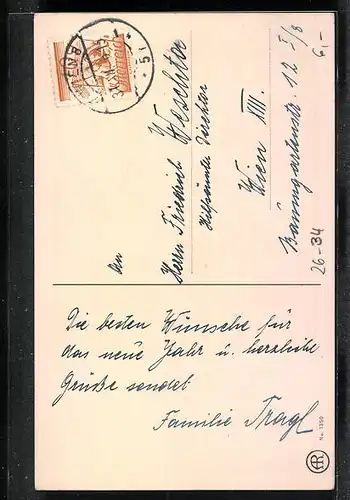 An
Herrn Friedrich Weschta
Hilfsämter Direktor
Wien XIII.
Baumgartenstr. 12 I/8
6,-
26-34
Die besten Wünsche für
das neue Jahr u. herzliche
Grüße sendet
Familie Tragl
No. 1350